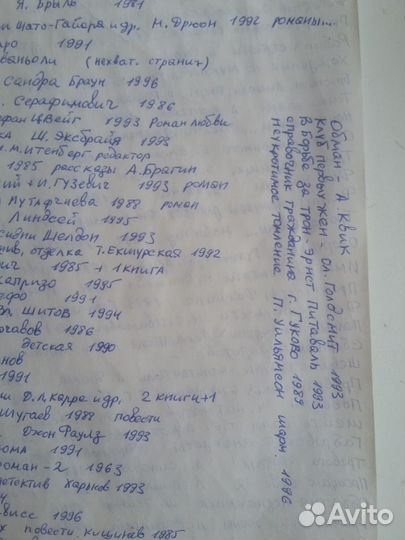 Я. Брыль 1981
и Шато-Гайара и др. М. Дрюон 1992 романы...
1991
(нехват. страниц)
Сандра Браун 1996
. Серафимович 1986
Цвейг 1993 Роман любви
Ш. Эксбрайя 1993
редактор
1985 рассказы А. Брагин
+ И. Гузевич 1993 роман
1988 роман
Линдсей 1995
Шелдон 1993
отделка Т. Екшурская 1992
1985 + 1 книга
1995
1991
Шитов 1994
1986
детская 1990
1991
Д. Л. Карре и др. 2 книги +1
1988 повести
. Джон Фаулз 1993
1991
роман - 2 1963
детектив Харьков 1993
1996
повести. Кишинёв 1985
Обман - А. Квик
Клуб первых жен - Ол. Голдсмит 1993
В борьбе за трон - Эрнст Питаваль 1993
справочник гражданина г. Гуково 1989
неукротимое томление П. Уильямсон шарм. 1996
Avito